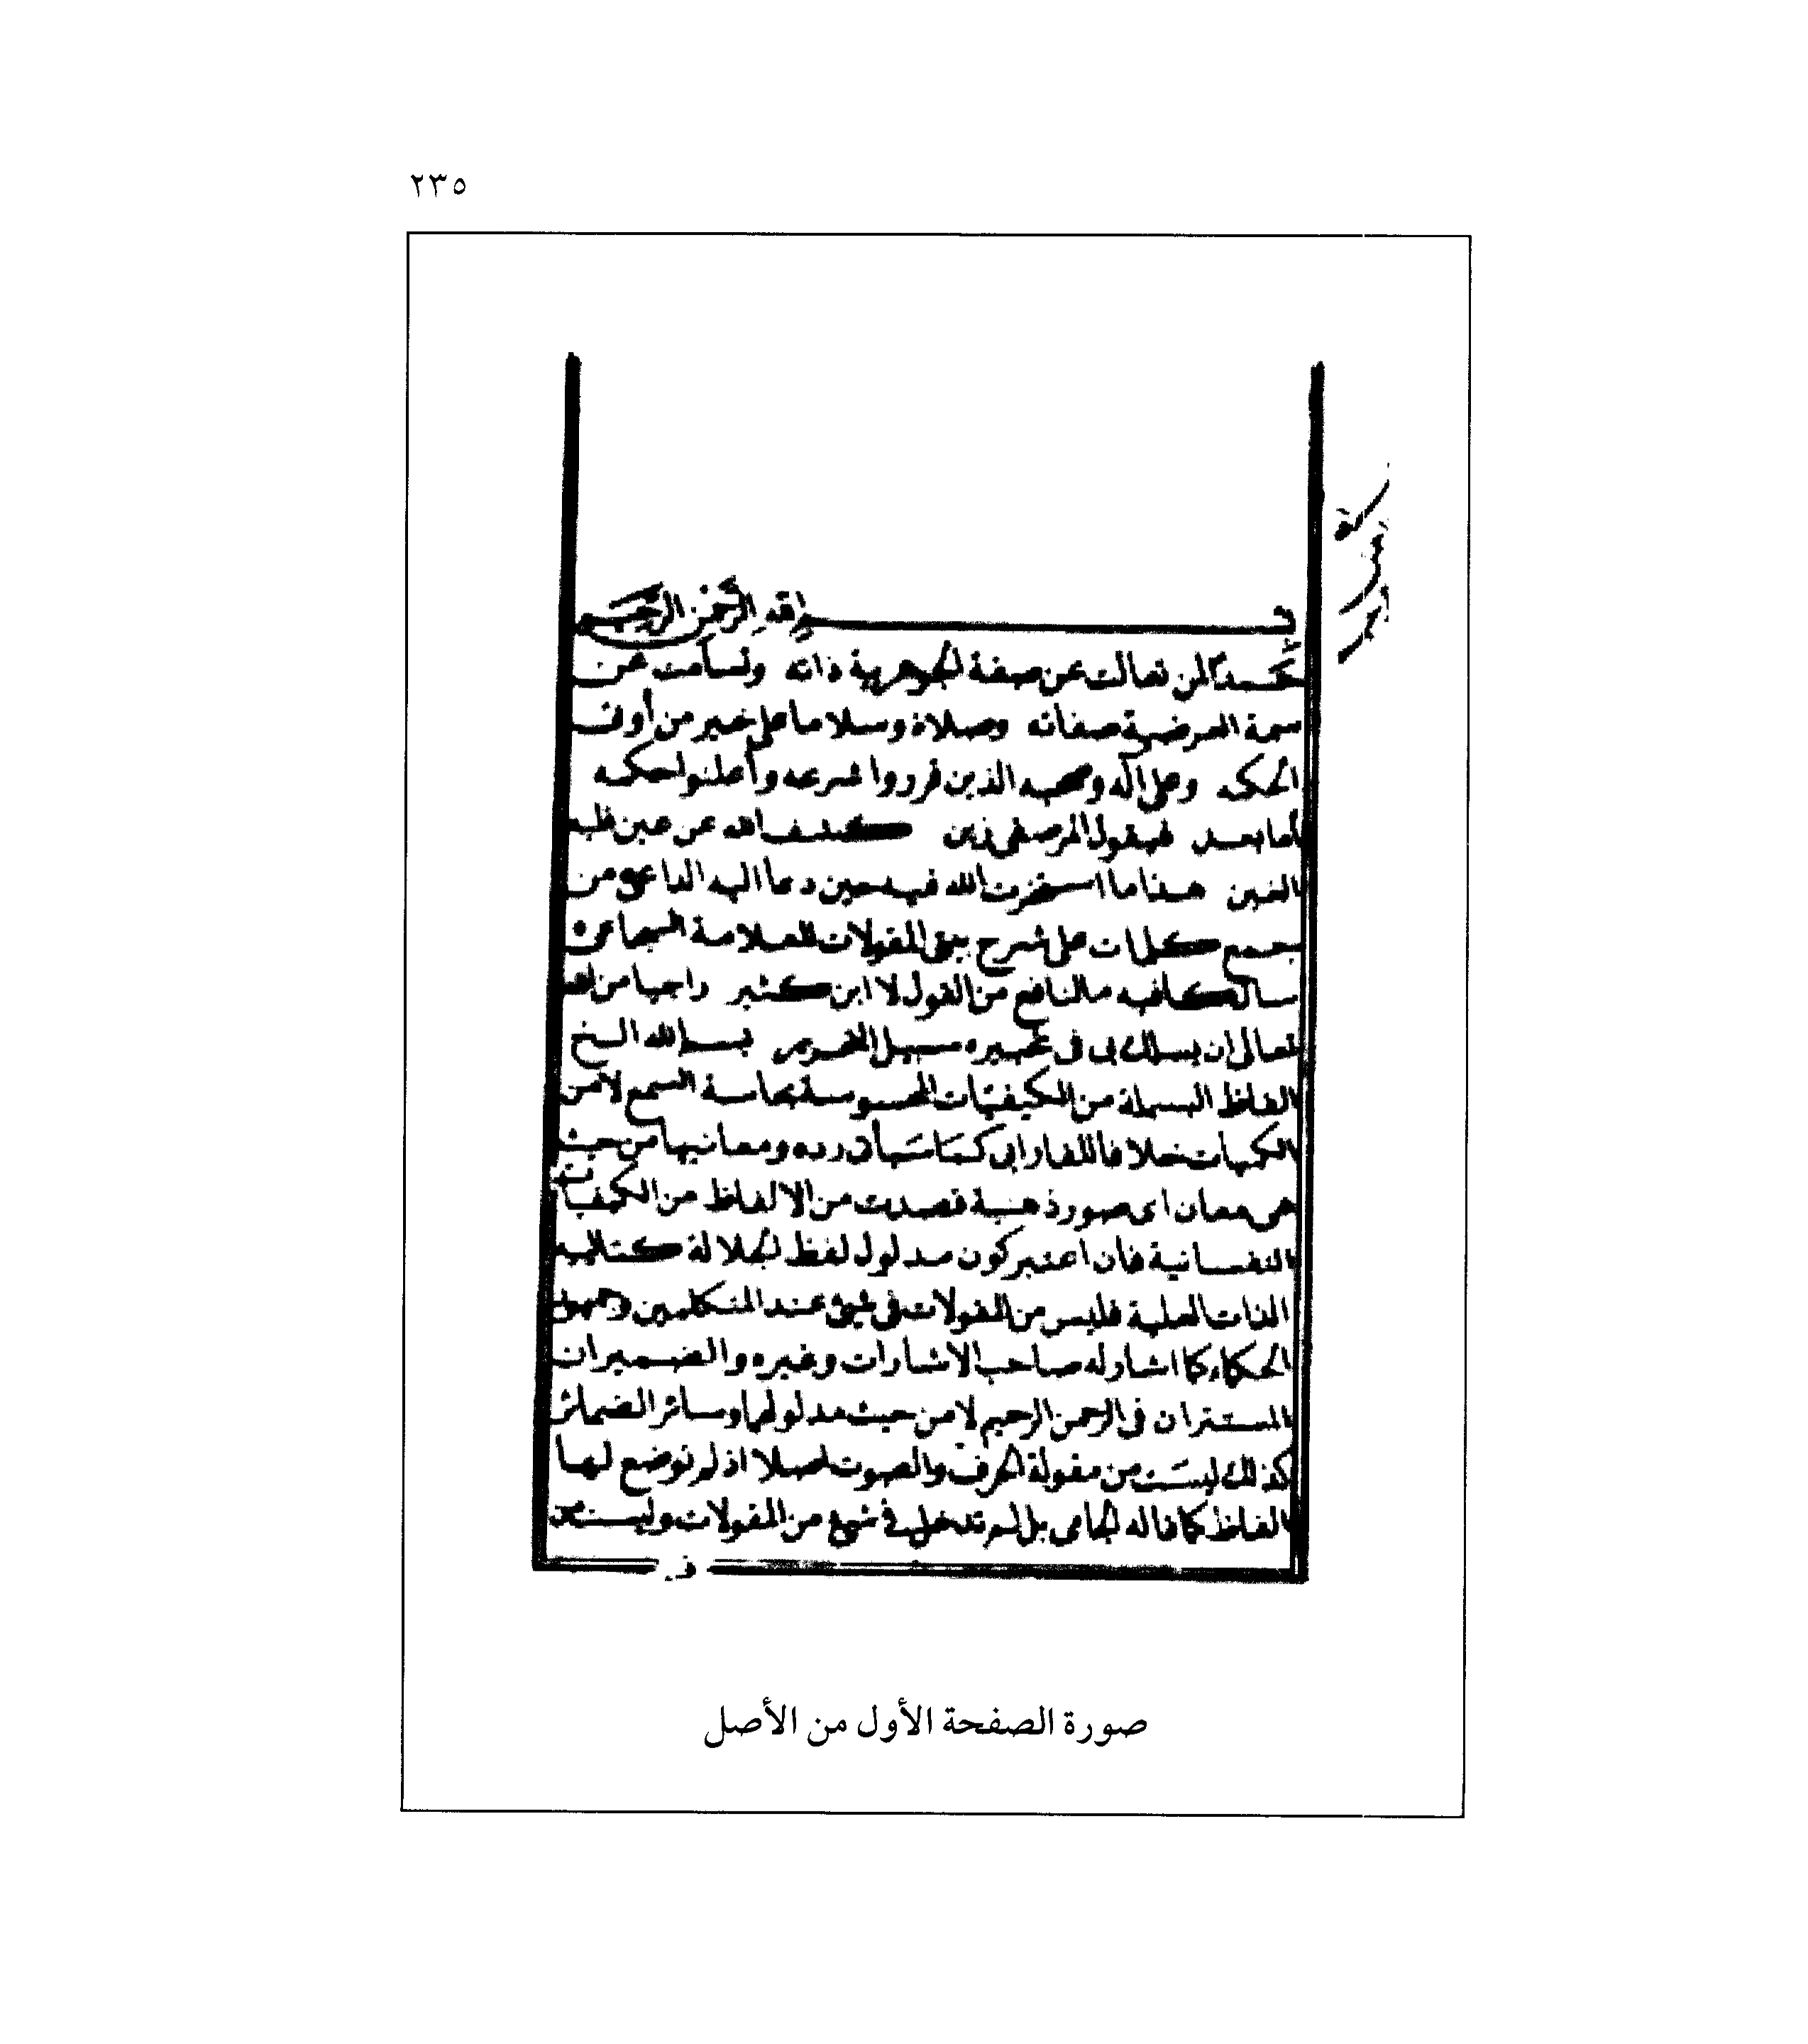 ٢٣٥
بسم الله الرحمن الرحيم
حمدا لمن تعالت عن صفة الجوهرية ذاته وتسامت عن
سمة العرضية صفاته وصلاة وسلاما على خير من أوتى
الحكمه وعلى آله وصحبه الذين قرروا شرعه وأعلنوا حكمه
أما بعد فيقول المرصفى زين كشف الله عن عين قلبه
الغين هذا ما استخرت الله فيه حين دعا اليه الداعى من
جمع كلمات على شرح بيتى المقولات للعلامة السجاعى
سالكا فيه مالنافع من القول لا ابن كثير راجيا من الله
تعالى ان يسلك بى فى تحبيره سبيل التحرير بسم الله الخ
الفاظ البسملة من الكيفيات المحسوسة بحاسة السمع لا من
الكميات خلافا للفارابى كما سيأتى رده ومعانيها من حيث
هى معان اى صور ذهنية قصدت من الالفاظ من الكيفيات
النفسانية فان اعتبر كون مدلول لفظ الجلالة
الذات العلية فليس من المقولات فى شىء عند المتكلمين وجمهور
الحكماء كما اشار له صاحب الاشارات وغيره والضميران
المستتران فى الرحمن الرحيم لا من حيث مدلولهما وسائر الضمائر
كذلك ليست من مقولة الحرف والصوت اصلا اذ لم توضع لها
الفاظ كما قاله الجامى بل لم تدخل فى شىء من المقولات وليست من
صورة الصفحة الأول من الأصل